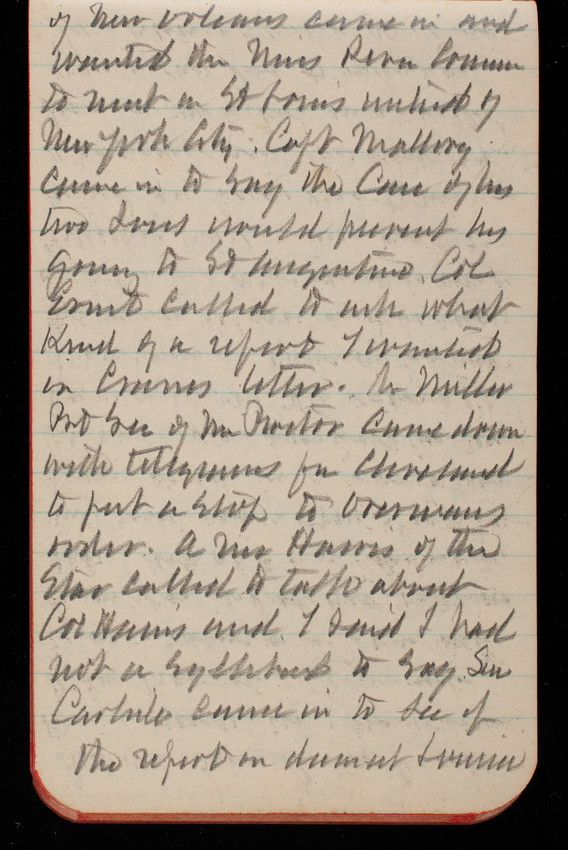 of New Orleans came in and
wanted the Miss River Comm
to meet in St Louis instead of
New York City. Capt Mallory
came in to say the Care of his
two sons would prevent his
going to St Augustine. Col
Ernst called to ask what
Kind of a report I wanted
in letter. Mr Miller
Prt Sec of Mr Proctor came down
with telegrams fm Cleveland
to put a stop to Overmans
order. A Mr Harris of the
Star called to talk about
Col Hains and I said I had
not a syllabus to say. Sen
Carlisle came in to see if
the report on